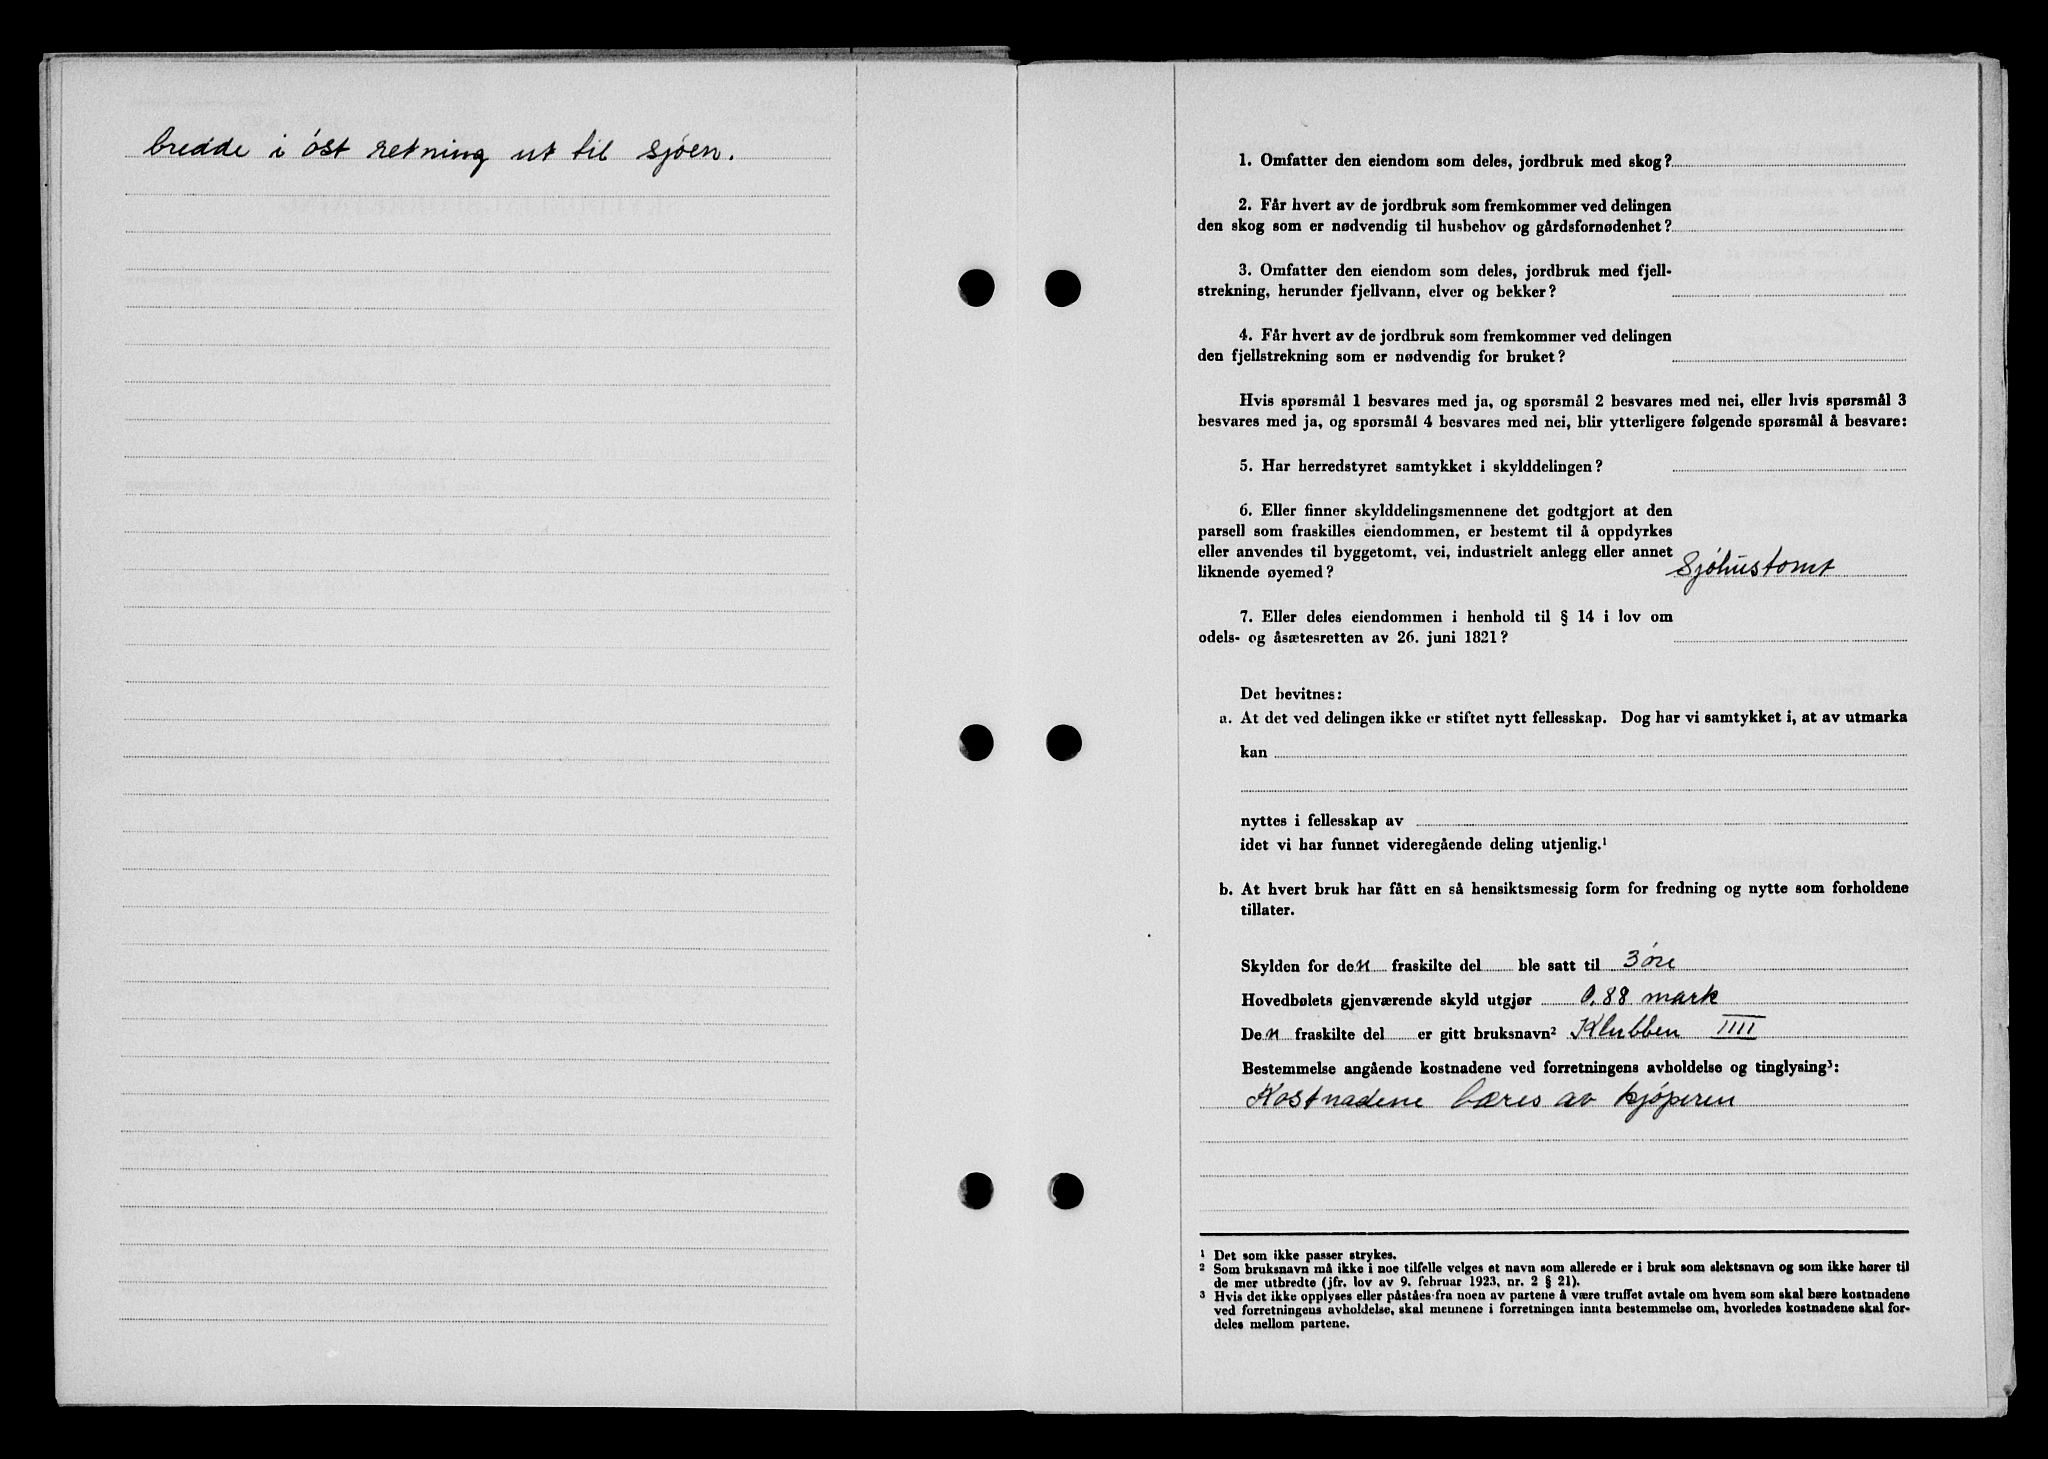 bredde i øst retning ut til sjøen.
1. Omfatter den eiendom som deles, jordbruk med skog?
2. Får hvert av de jordbruk som fremkommer ved delingen
den skog som er nødvendig til husbehov og gårdsfornødenhet?
3. Omfatter den eiendom som deles, jordbruk med fjell-
strekning, herunder fjellvann, elver og bekker?
4. Får hvert av de jordbruk som fremkommer ved delingen
den fjellstrekning som er nødvendig for bruket?
Hvis spørsmål 1 besvares med ja, og spørsmål 2 besvares med nei, eller hvis spørsmål 3
besvares med ja, og spørsmål 4 besvares med nei, blir ytterligere følgende spørsmål å besvare:
5. Har herredstyret samtykket i skylddelingen?
6. Eller finner skylddelingsmennene det godtgjort at den
parsell som fraskilles eiendommen, er bestemt til å oppdyrkes
eller anvendes til byggetomt, vei, industrielt anlegg eller annet
liknende øyemed? Sjøhustomt
7. Eller deles eiendommen i henhold til § 14 i lov om
odels- og åsætesretten av 26. juni 1821?
Det bevitnes:
a. At det ved delingen ikke er stiftet nytt fellesskap. Dog har vi samtykket i, at av utmarka
kan
nyttes i fellesskap av
idet vi har funnet videregående deling utjenlig.¹
b. At hvert bruk har fått en så hensiktsmessig form for fredning og nytte som forholdene
tillater.
Skylden for den fraskilte del ble satt til 3 øre
Hovedbølets gjenværende skyld utgjør 0,88 mark
Den fraskilte del er gitt bruksnavn² Klubben IIII
Bestemmelse angående kostnadene ved forretningens avholdelse og tinglysing³:
Kostnadene bæres av kjøperen
¹ Det som ikke passer strykes.
² Som bruksnavn må ikke i noe tilfelle velges et navn som allerede er i bruk som slektsnavn og som ikke hører til
de mer utbredte (jfr. lov av 9. februar 1923, nr. 2 § 21).
³ Hvis det ikke opplyses eller påståes fra noen av partene å være truffet avtale om hvem som skal bære kostnadene
ved forretningens avholdelse, skal mennene i forretningen innta bestemmelse om, hvorledes kostnadene skal for-
deles mellom partene.